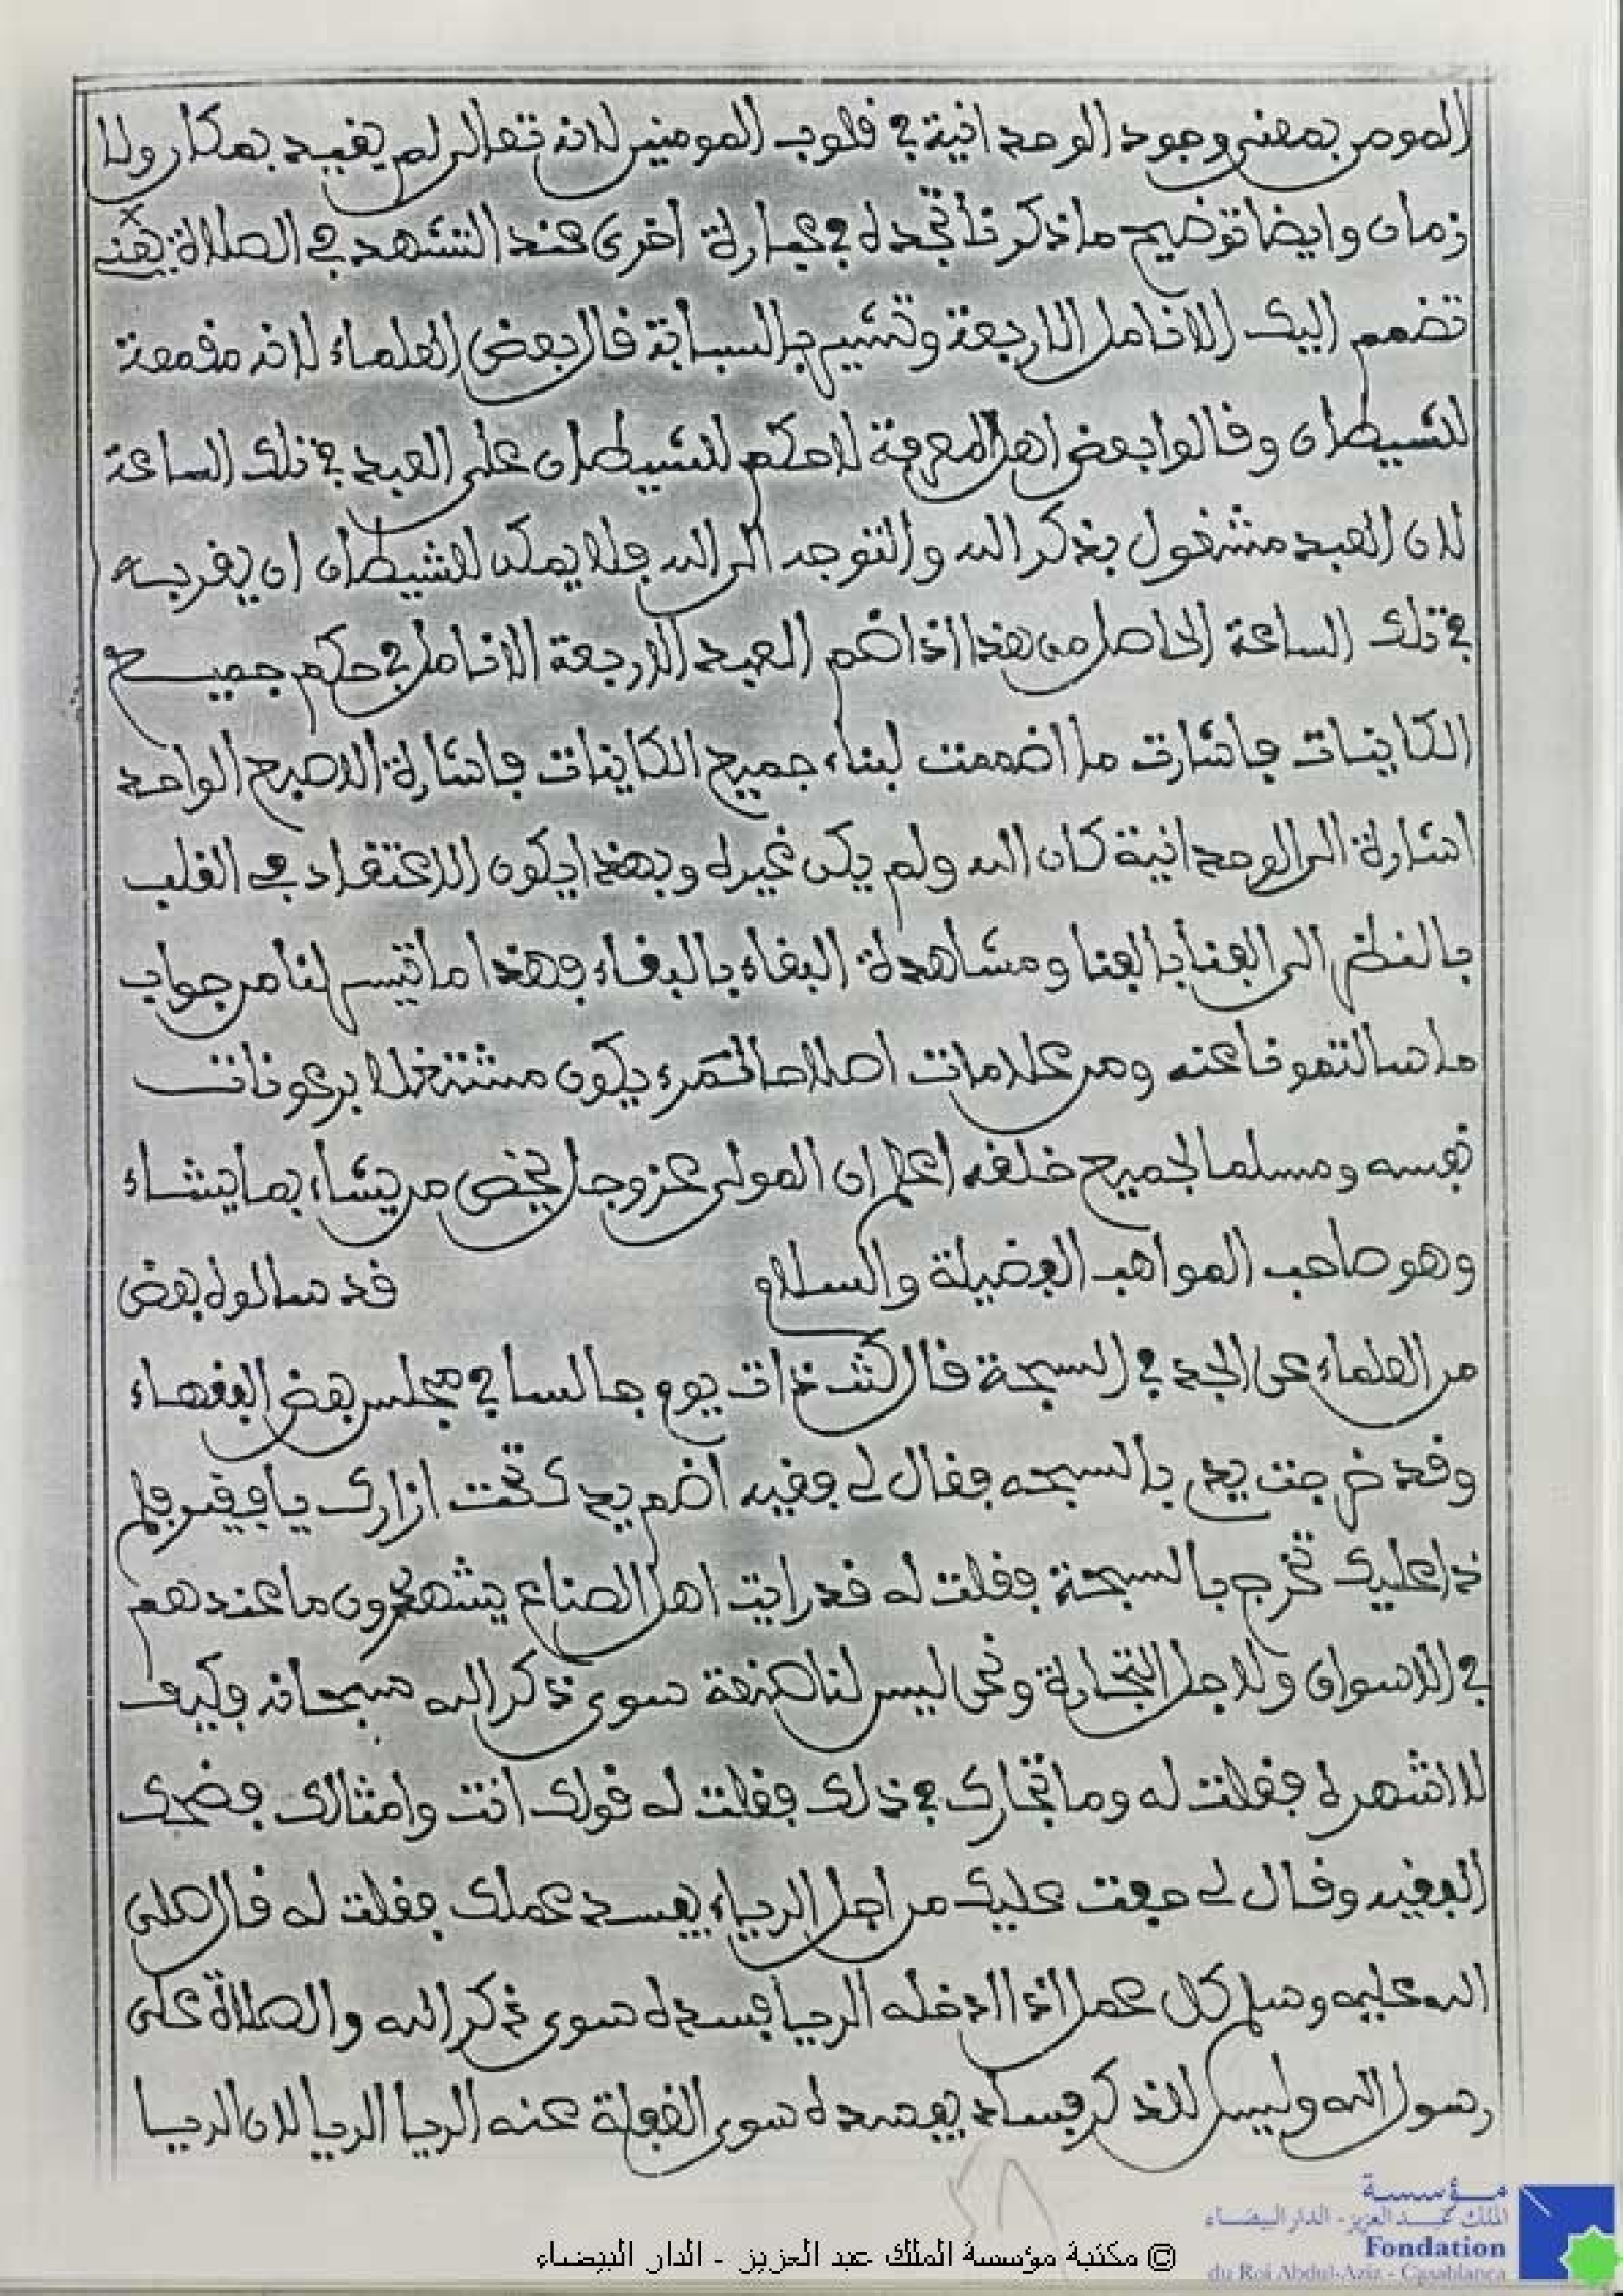 المومن بمعنى وجود الوحدانية في قلوب المومنين لانه تعالى لم يقيد بمكان ولا
زمان وايضا توضيح ما ذكرنا تجده في عبارة اخرى عند التشهد في الصلاة
تضمم اليك الانامل الاربعة وتشير بالسبابة قال بعض العلماء لانه مقمعة
للشيطان وقالوا بعض اهل المعرفة لا حكم للشيطان على العبد في تلك الساعة
لان العبد مشغول بذكر الله والتوجه الى الله فلا يمكن للشيطان ان يقربه
في تلك الساعة الحاصل من هذا اذا ضم العبد الاربعة الانامل في حكم جميع
الكاينات فاشارت ما اضممت لبناء جميع الكاينات فاشارة الاصبع الواحد
اشارة الى الوحدانية كان الله ولم يكن غيره وبهذا يكون الاعتقاد في القلب
بالنظر الى الفنا بالفنا ومشاهدة البقاء بالبقاء فهذا ما تيسر لنا من جواب
ما سالتمونا عنه ومن علامات اصلاح المرء يكون مشتغلا برعونات
نفسه ومسلما لجميع خلقه اعلم ان المولى عز وجل يخص من يشاء بما يشاء
وهو صاحب المواهب الفضيلة والسلام قد سالوه بعض
من العلماء عن الجد في السبحة قال كنت ذات يوم جالسا في مجلس بعض الفقهاء
وقد خرجت يدي بالسبحه فقال لي فقيه اضم يدك تحت ازارك يا فقير فلم
ذا عليك تخرج بالسبحة فقلت له قد رايت اهل الصناع يشهرون ما عندهم
في الاسواق ولاجل التجارة ونحن ليس لنا صنعة سوى ذكر الله سبحانه وكيف
لا اشهره فقلت له وما تجارك في ذلك فقلت له قولك انت وامثالك فضحك
الفقيه وقال لي خفت عليك من اجل الرياء يفسد عملك فقلت له قال صلى
الله عليه وسلم كل عمل اذا ادخله الريا فسده سوى ذكر الله والصلاة على
رسول الله وليس للذكر فساد يفسده سوى الغفلة عنه الريا الريا لان الريا
٤٨
© مكتبة مؤسسة الملك عبد العزيز - الدار البيضاء
مؤسسة
الملك عبد العزيز - الدار البيضاء
Fondation
du Roi Abdul-Aziz - Casablanca